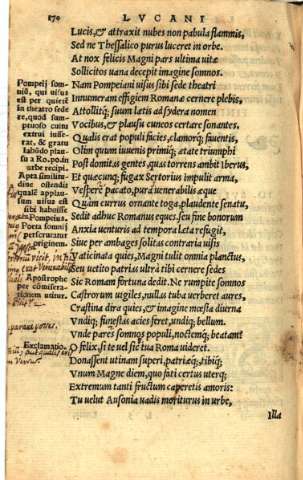 170
LVCANI
Lucis, et attraxit nubes non pabula flammis,
Sed ne Thessalico purus luceret in orbe.
At nox felicis Magni pars ultima uitæ
Sollicitos uana decepit imagine somnos.
Nam Pompeiani uisus sibi sede theatri
Innumeram effigiem Romanæ cernere plebis,
Attolliq; suum lætis ad sydera nomen
Vocibus, & plausu cuneos certare sonantes.
Qualis erat populi facies, clamorq; fauentis,
Olim quum iuuenis primiq; ætate triumphi
Post domitas gentes, quas torrens ambit Iberus,
Et quæcunq; fugax Sertorius impulit arma,
Vespere pacato, pura uenerabilis æque
Quàm currus ornante toga, plaudente senatu,
Sedit adhuc Romanus eques. seu fine bonorum
Anxia uenturis ad tempora læta refugit,
Siue per ambages solitas contraria uisis
Vaticinata quies, Magni tulit omnia planctus,
Seu uetito patrias ultrà tibi cernere sedes
Sic Romam fortuna dedit. Ne rumpite somnos
Castrorum uigiles, nullas tuba uerberet aures,
Crastina dira quies, & imagine mœsta diurna
Vndiq; funestas acies feret, undiq; bellum.
Vnde pares somnos populi, noctemq; beatam?
O felix, si te uel sic tua Roma uideret.
Donassent utinam superi, patriæq; tibiq;
Vnum Magne diem, quo fati certus uterq;
Extremum tanti fructum caperetis amoris:
Tu uelut Ausonia uadis moriturus in urbe,
Illa
Pompeij som
niū, qui uisus
est per quietē
in theatro sede
re, quod sum-
ptuoso cultu
extrui
iusse-
rat, & gran
labūdo plau-
su a Ro. po. in
urbe recipi.
Apta simili
dine ostendit
qualē applau
sum uisus est
sibi habuisse
Pompeius.
Poeta somni
perscrutatur
originem.
Apostrophe
per cōmisera-
tionem utitur.
Exclamatio.